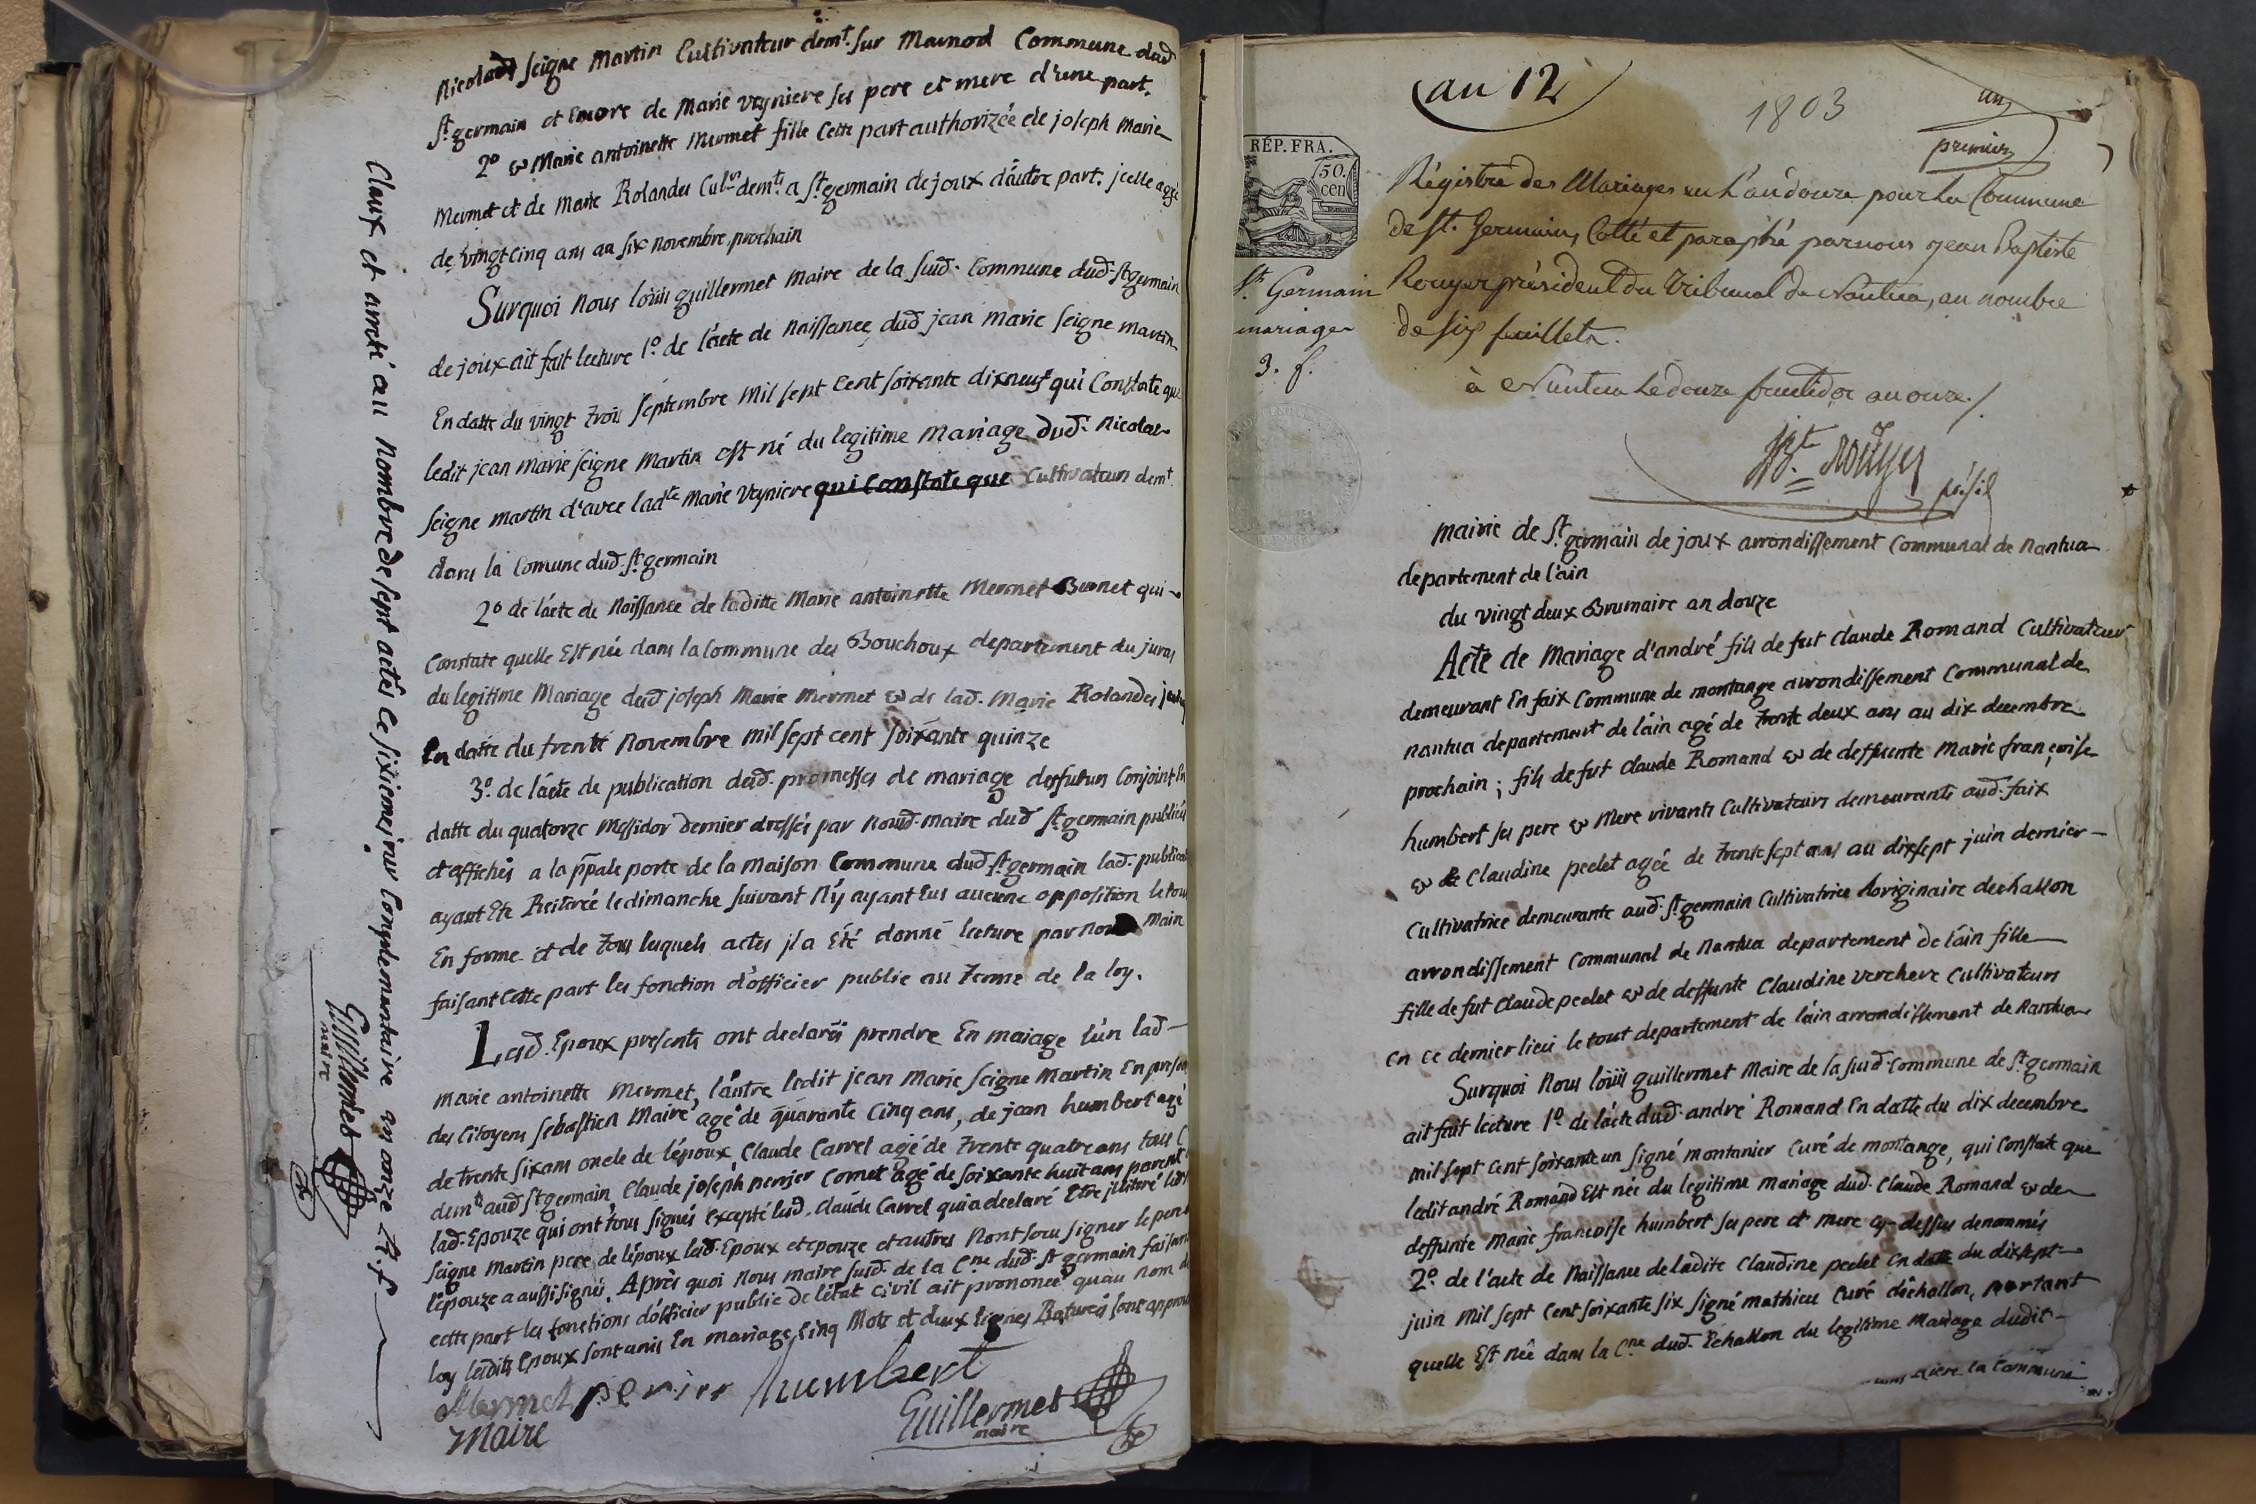 Nicolas seigne Martin Cultivateur demt. sur Marnod Commune dud
st. germain et Encore de Marie veyniere ses pere et mere d'une part.
2º & Marie antoinette Mermet fille Cette part authorizée de joseph Marie
Mermet et de Marie Rolandes Culrs. demts. a st. germain de joux d'autre part. jcelle agée
de vingt Cinq ans au six novembre prochain
Surquoi Nous loüis guillermet Maire de la susd. Commune dud. st germain
de joux ait fait lecture 1º. de l'acte de Naissance dud jean marie seigne martin
En datte du vingt trois septembre Mil sept Cent soixante dixneuf qui Constate que
ledit jean marie seigne Martin est né du legitime Mariage dud. Nicolas
seigne martin d'avec ladte Marie Veyniere qui Constate que Cultivateurs demt.
dans la Comune dud. st. germain
2º de l'acte de Naissance de laditte Marie antoinette Mermet Burnet qui
Constate quelle Est née dans la Commune des Bouchoux departement du juras
du legitime Mariage dud joseph Marie Mermet & de lad. Marie Rolandes
En datte du trente Novembre mil sept cent soixante quinze
3º. de l'acte de publication desd. promesses de mariage des futurs Conjoint En
datte du quatorze Messidor dernier dressés par Nousd. maire dud st. germain publiés
et affichés a la ppale porte de la Maison Commune dud. st. germain lad. publicat
ayant Eté Reiterée le dimanche suivant N'y ayant Eus aucune opposition le tout
En forme et de tous lesquels actes jl a Eté donné lecture par nous Maire
faisant Cette part les fonction d'officier public au terme de la loy.
Lesd. Epoux presents ont declarés prendre En maiage l'un lad
marie antoinette Mermet, l'autre ledit jean Marie seigne Martin En presen
des Citoyens sebastien Maire agé de quarante Cinq ans, de jean humbert agé
de trente six ans oncle de l'époux, Claude Carrel agé de trente quatre ans tous C
demts aud st. germain, Claude joseph perrier Cornet agé de soixante huit ans parent
lad. Epouze qui ont tous signés Excepté led. Claude Carrel qui a declaré Etre jlliteré
seigne Martin pere de l'époux lesd. Epoux et epouze et autres N'ont scu signer le pere
l'épouze a aussi signé. Après quoi nous maire susd. de la Cne dud. st germain faisant
cette part les fonctions d'officier public de l'état civil ait prononcé quau nom de
loy lesdits Epoux sont unis En mariage, Cinq Mots et deux lignes Raturés sont approu
Mermet perrier humbert
Maire
Guillermet
maire
Claux et arreté au Nombre de sept actes ce sixieme jour Complementaire an onze R. f.
Guillermet
maire
an 12
1803
un
premier
RÉP. FRA.
50.
cen
st. Germain
mariages
3. f.
Régistre des Mariages en L'an douze pour La Commune
de st. Germain, Cotté et paraphé par nous jean Baptiste
Rouyer président du Tribunal de Nantua, au nombre
de six feuillets.
à Nantua Le douze fructidor an onze./
JBt. Rouyer
présid
Mairie de st. germain de joux arrondissement Communal de Nantua
departement de l'ain
du vingt deux Brumaire an douze
Acte de Mariage d'andré fils de fut Claude Romand Cultivateur
demeurant En faix Commune de montange arrondissement Communal de
nantua departement de l'ain agé de trente deux ans au dix decembre
prochain ; fils de fut Claude Romand & de deffunte Marie françoise
humbert ses pere & Mere vivants Cultivateurs demeurants aud. faix
& de Claudine peelet agée de trente sept ans au dixsept juin dernier
Cultivatrice demeurante aud. st. germain Cultivatrice originaire dechallon
arrondissement Communal de Nantua departement de l'ain fille
fille de fut Claude peelet & de deffunte Claudine verchere Cultivateurs
en ce dernier lieu le tout departement de l'ain arrondissement de Nantua
Surquoi Nous loüis guillermet Maire de la susd. Commune de st. germain
ait fait lecture 1º. de l'acte dud. andré Romand En datte du dix decembre
mil sept cent soixante un signé montanier Curé de montange, qui Constate que
ledit andré Romand Est née du legitime mariage dud. Claude Romand & de
deffunte Marie francoise humbert ses pere et mere cy-dessus denommés
2º. de l'acte de Naissance de ladite Claudine peelet En datte du dixsept
juin Mil sept Cent soixante six signé mathieu Curé d'échallon, portant
quelle Est née dans la Cne dud. Echallon du legitime Mariage dudit
la Commune